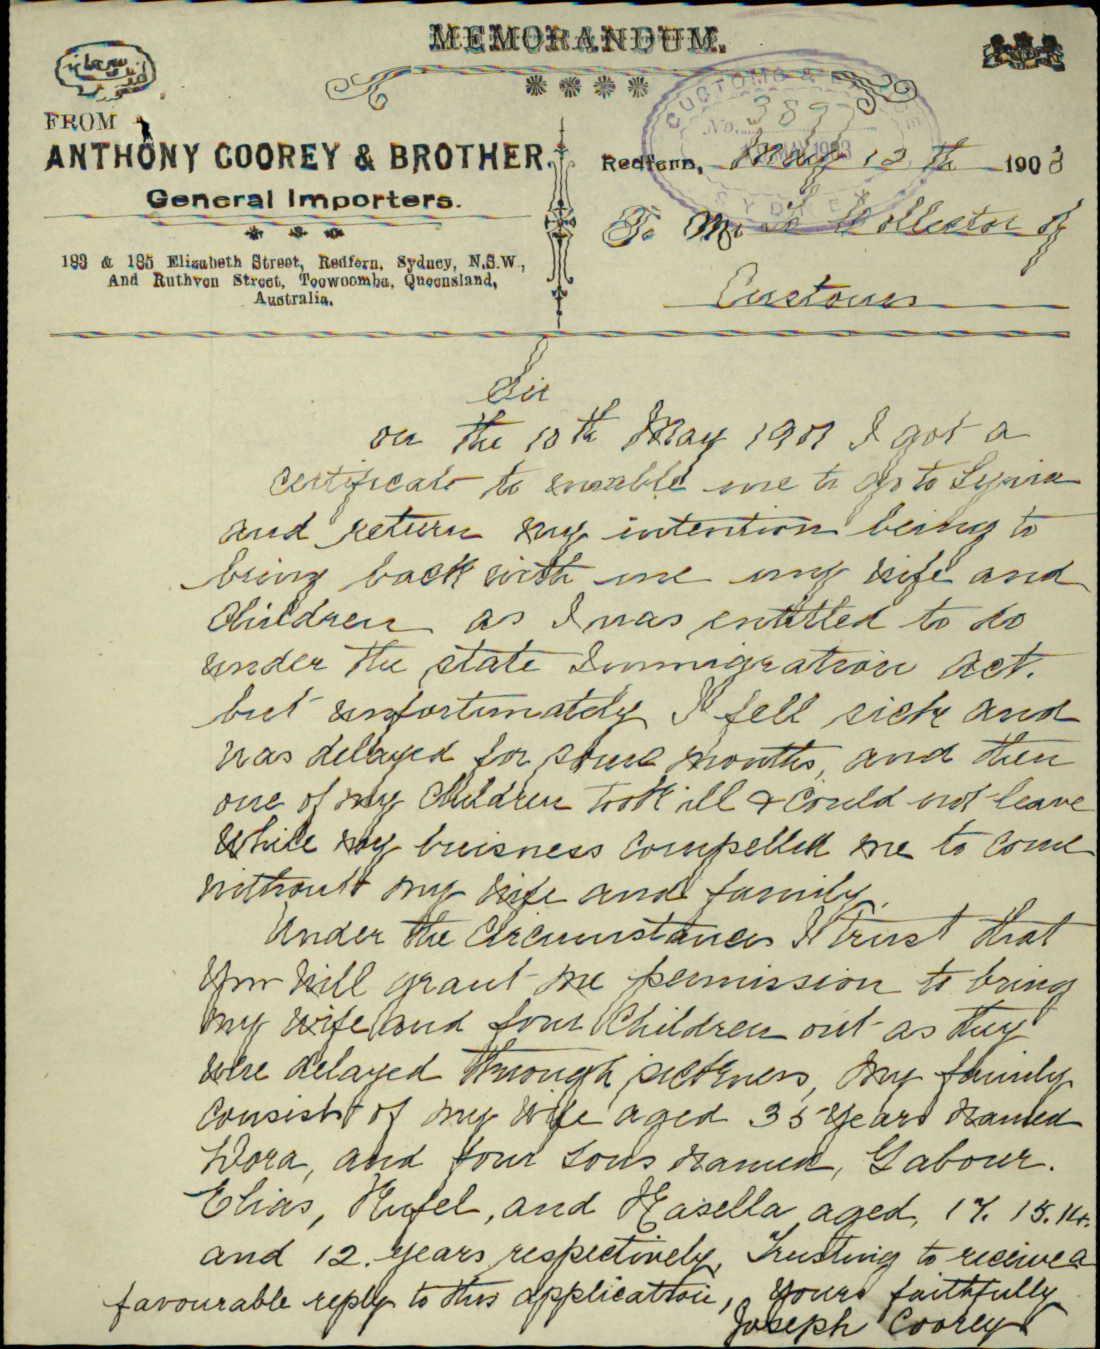 MEMORANDUM.
FROM
ANTHONY COOREY & BROTHER.
General Importers.
193 & 195 Elizabeth Street, Redfern, Sydney, N.S.W.,
And Ruthven Street, Toowoomba, Queensland,
Australia.
CUSTOMS &
No. 3897
MAY 1903
SYDNEY
Redfern, May 12th 1903
To Mr The Collector of
Customs
Sir
on the 10th May 1901 I got a
certificate to enable me to go to Syria
and return my intention being to
bring back with me my wife and
Children as I was entitled to do
under the state Immigration act.
but unfortunately I fell sick and
was delayed for some months, and then
one of my Children took ill & could not leave
while my buisness compelled me to come
without my wife and family.
Under the Circumstances I trust that
you will grant me permission to bring
my wife and four Children out as they
were delayed through sickness, my family
consist of my wife aged 35 years named
Wora, and four sons named, Gabour.
Elias, Rufel, and Hasella, aged, 17. 15. 14.
and 12. years respectively, Trusting to receive a
favourable reply to this application, yours faithfully
Joseph Coorey